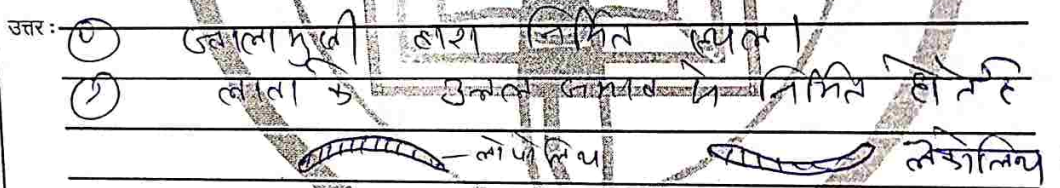 उत्तर :-
ज्वालामुखी द्वारा निर्मित स्थल।
लावा के उत्तल जमाव से निर्मित होते है
लोपोलिथ लेकोलिथ